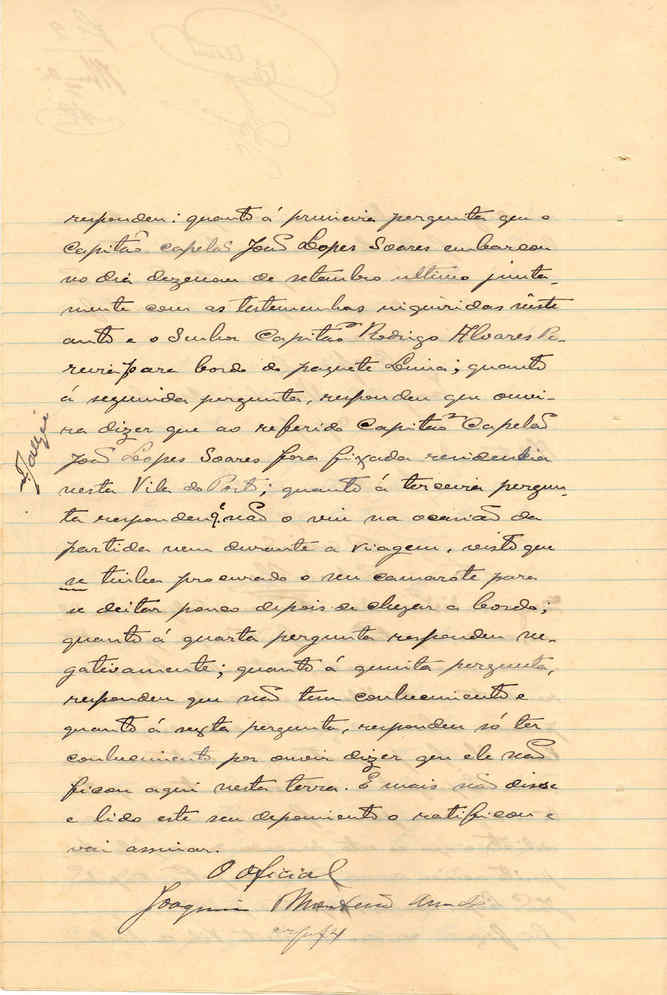 respondeu: quanto á primeira pergunta que o
Capitão capelão João Lopes Soares embarcou
no dia dezenove de setembro ultimo junta-
mente com as testemunhas inqueridas nêste
auto e o Senhor Capitão Rodrigo Alvares Pe-
reira para bordo do paquete Lima; quanto
á segunda pergunta, respondeu que ouvi-
ra dizer que ao referido Capitão Capelão
João Lopes Soares fora fixada residencia
nesta Vila do Porto; quanto á terceira pergun-
ta respondeu q. não o viu na ocasião da
partida nem durante a viagem, visto que
se tinha procurado o seu camarote para
se deitar pouco depois de chegar a bordo;
quanto á quarta pergunta respondeu ne-
gativamente; quanto á quinta pergunta,
respondeu que não tem conhecimento e
quanto á sexta pergunta, respondeu só ter
conhecimento por ouvir dizer que ele não
ficou aqui nesta terra. E mais não disse
e lido este seu depoimento o ratificou e
vai assinar.
O Oficial
Joaquim Monteiro